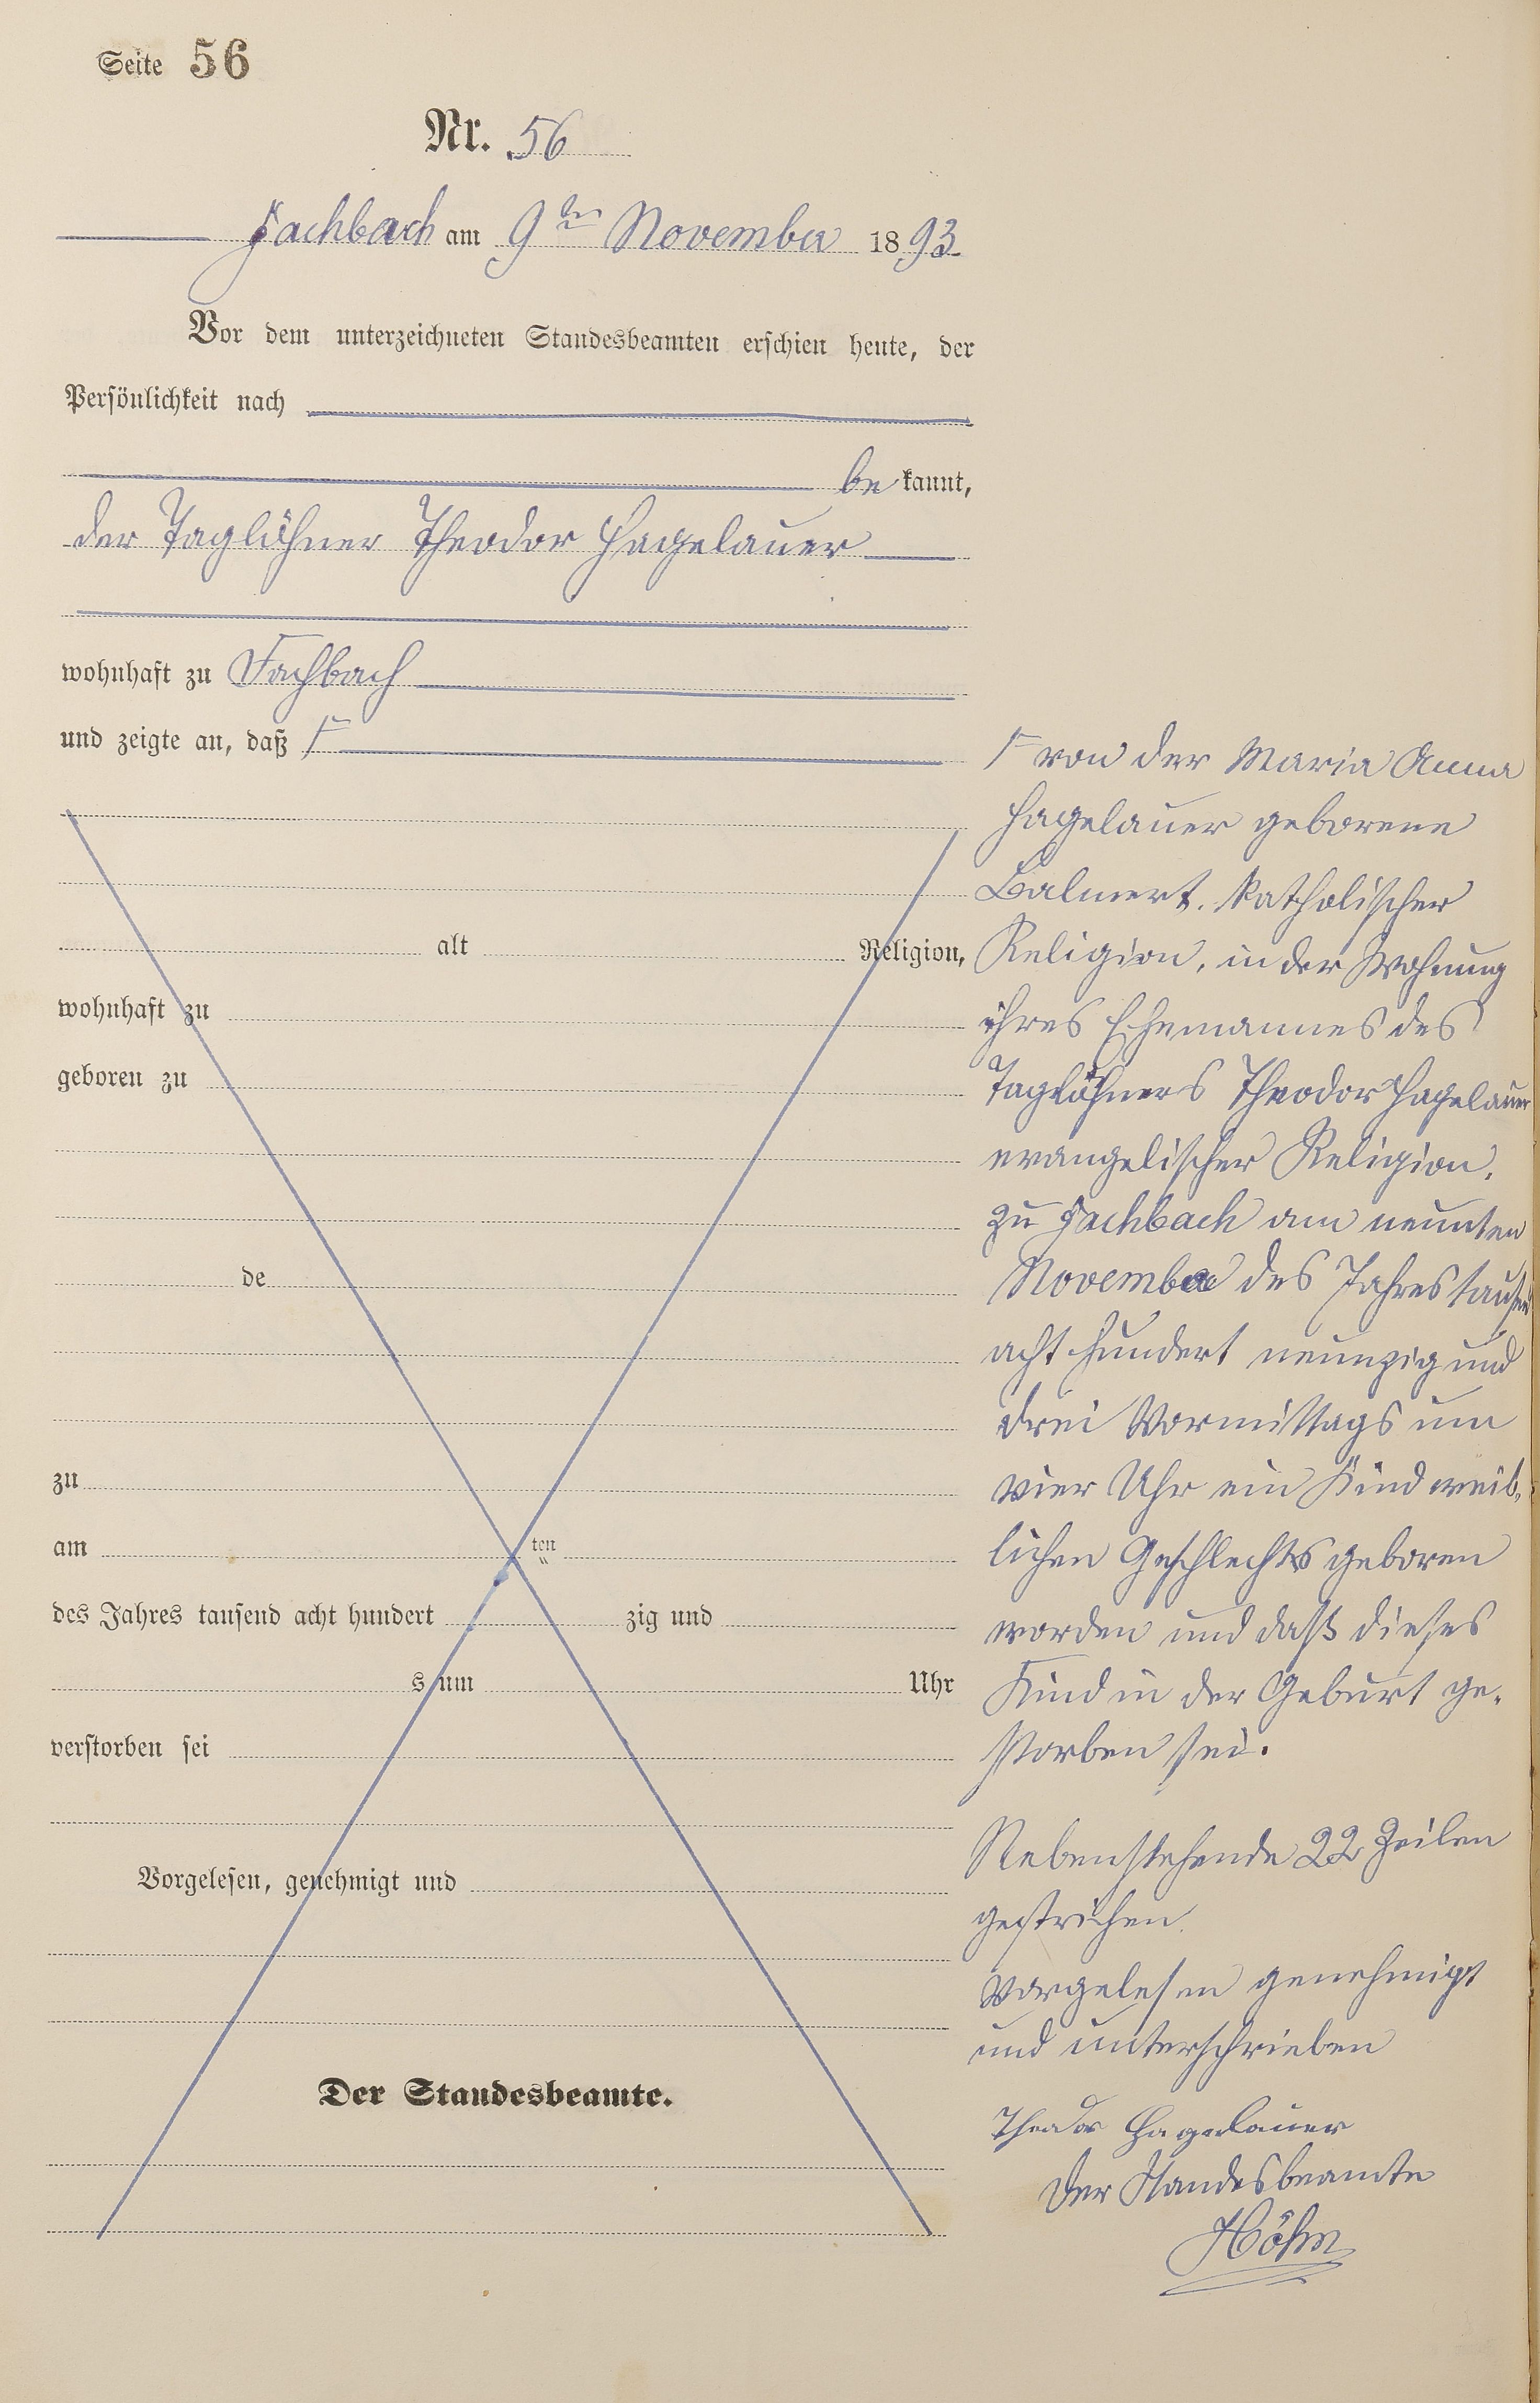 Seite 56
Nr. 56
Fachbach am 9ten November 1893
Vor dem unterzeichneten Standesbeamten erschien heute, der
Persönlichkeit nach
be kannt,
der Taglöhner Theodor Hagelauer
wohnhaft zu Fachbach
und zeigte an, daß Γ
alt Religion,
wohnhaft zu
geboren zu
de
zu
am ten
des Jahres tausend acht hundert zig und
s um Uhr
verstorben sei
Vorgelesen, genehmigt und
Der Standesbeamte.
Γ von der Maria Anna
Hagelauer geborene
Balmert, katholischer
Religion, in der Wohnung
ihres Ehemannes des
Taglöhners Theodor Hagelauer
evangelischer Religion,
zu Fachbach am neunten
November des Jahres tausend
acht hundert neunzig und
drei Vormittags um
vier Uhr ein Kind weib-
lichen Geschlechts geboren
worden und daß dieses
Kind in der Geburt ge-
storben sei.
Nebenstehende 22 Zeilen
gestrichen.
Vorgelesen genehmigt
und unterschrieben
Theodor Hagelauer
Der Standesbeamte
Höhn